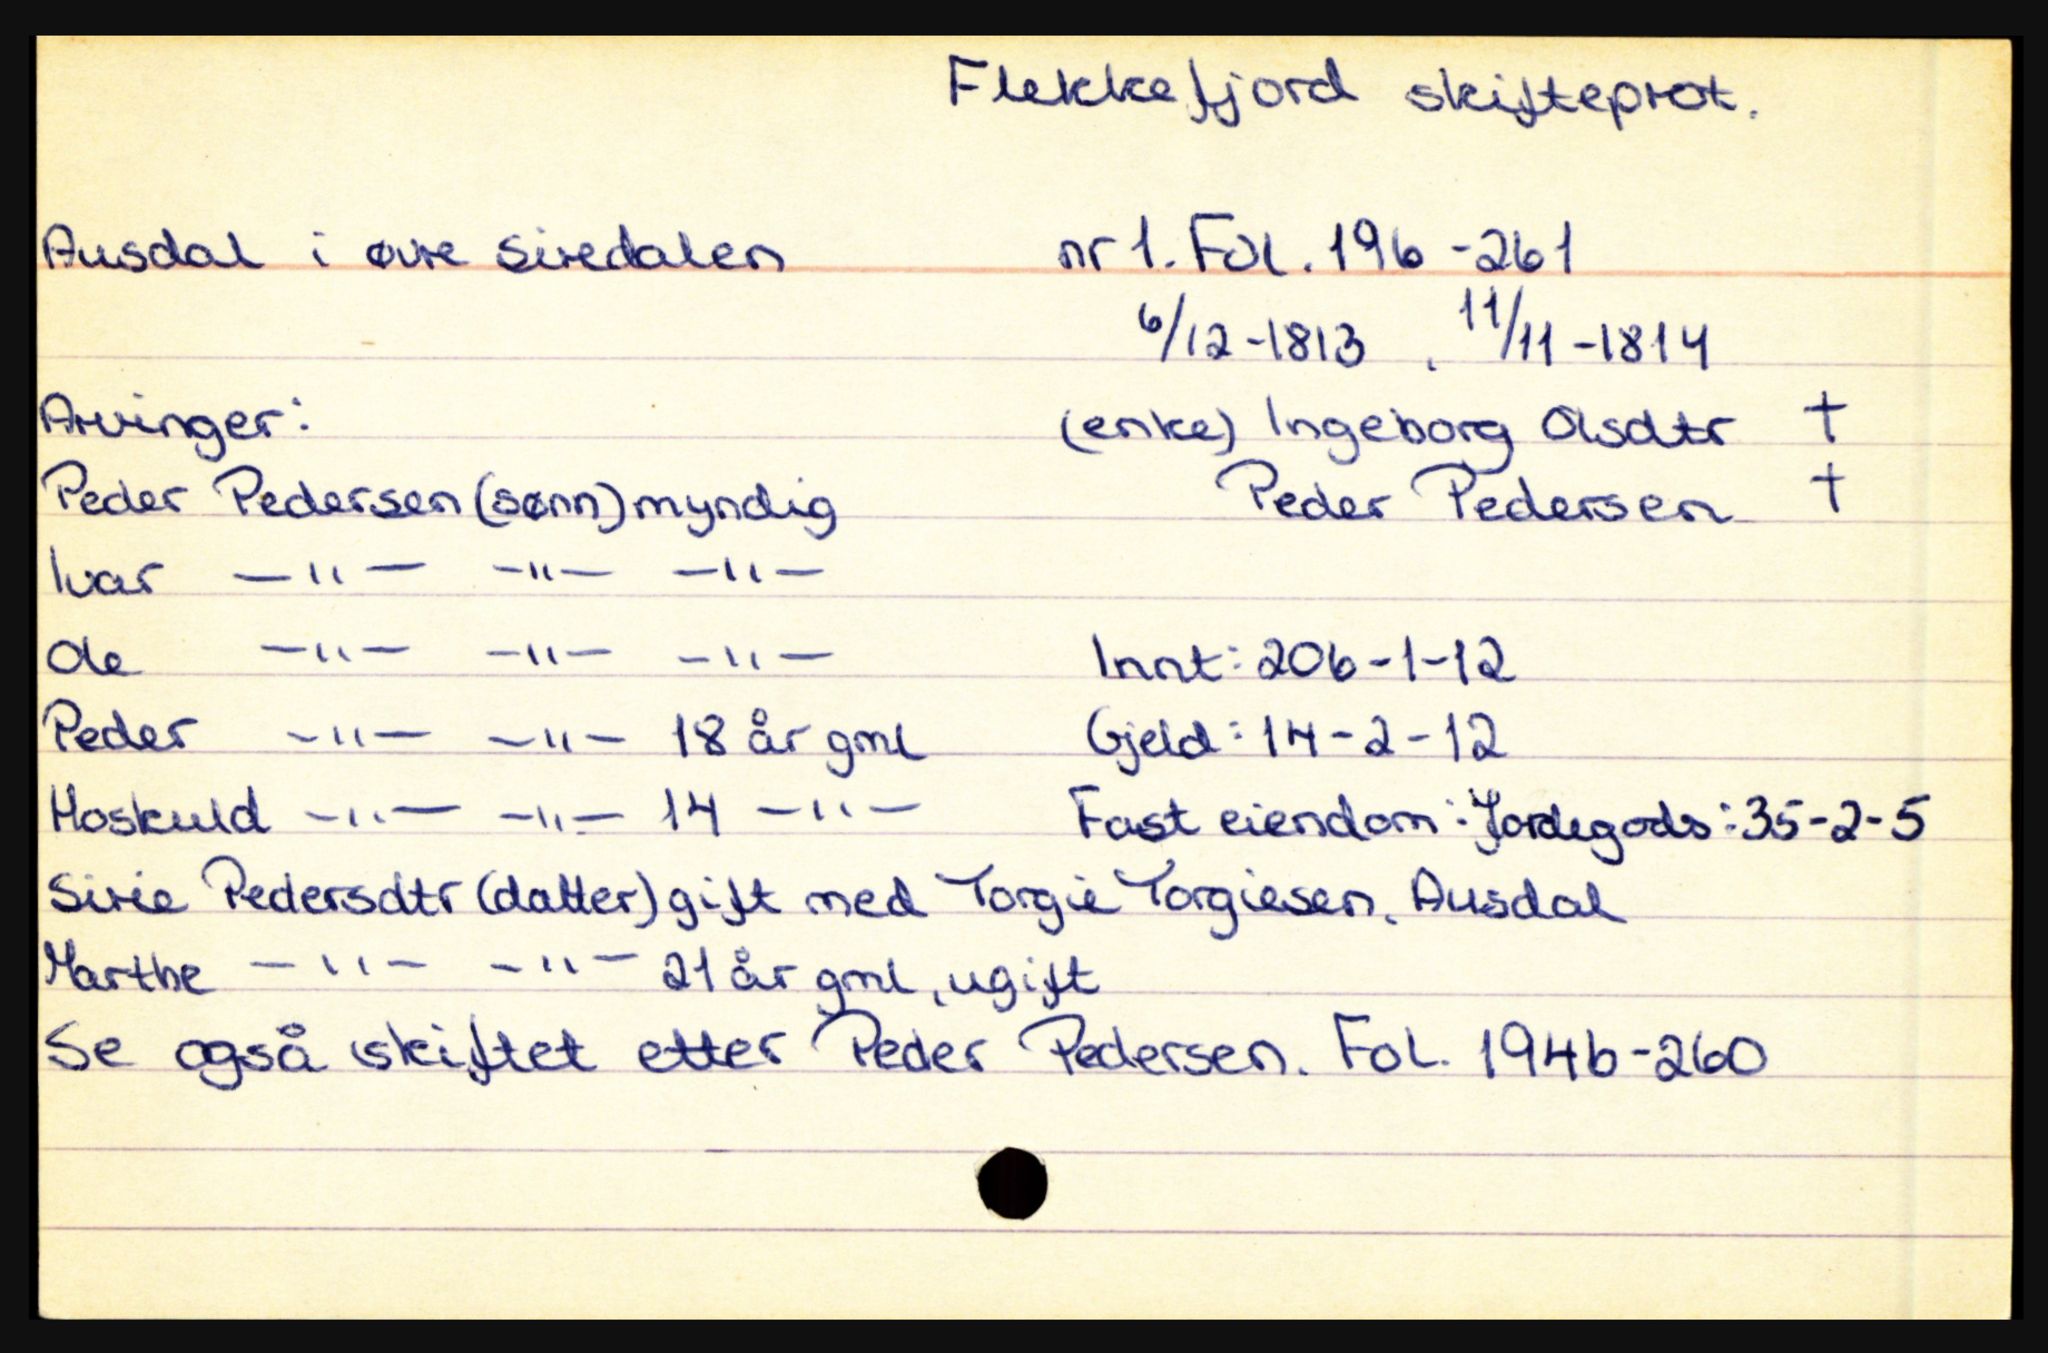 Flekkefjord skifteprot.
Ausdal i øvre Siredalen nr 1. Fol. 196 - 261
6/12 - 1813 , 11/11 - 1814
Arvinger: (enke) Ingeborg Olsdtr †
Peder Pedersen (sønn) myndig Peder Pedersen †
Ivar —"— —"— —"—
Ole —"— —"— —"— Innt: 206-1-12
Peder —"— —"— 18 år gml Gjeld: 14-2-12
Hoskuld —"— —"— 14 —"— Fast eiendom: Jordegods: 35-2-5
Sirie Pedersdtr (datter) gift med Torgie Torgiesen, Ausdal
Marthe —"— —"— 21 år gml, ugift
Se også skiftet etter Peder Pedersen. Fol. 194b-260